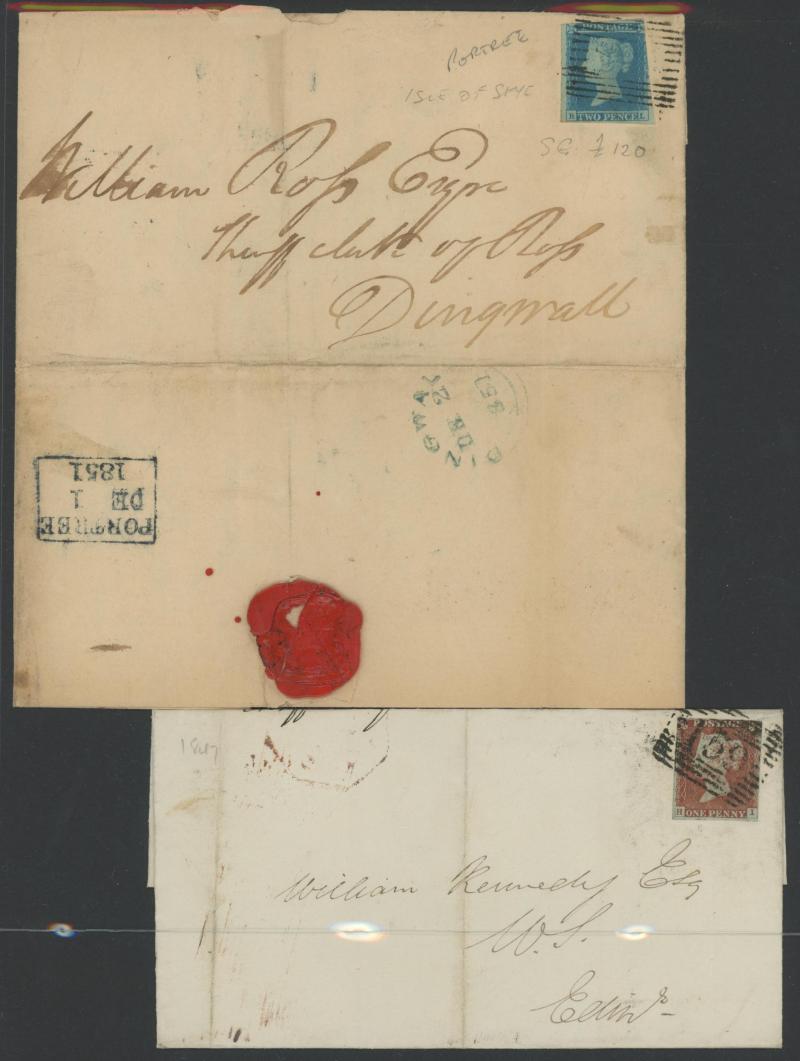 PORTREE
ISLE OF SKYE
POSTAGE
TWO PENCE
SG. £120
William Roſs Esqre
Sheriff clerk of Roſs
Dingwall
NGWAL
DE 2
1851
PORTREE
DE 1
1851
1847
POSTAGE
H ONE PENNY I
William Kennedy Esq
W.S.
Edinr